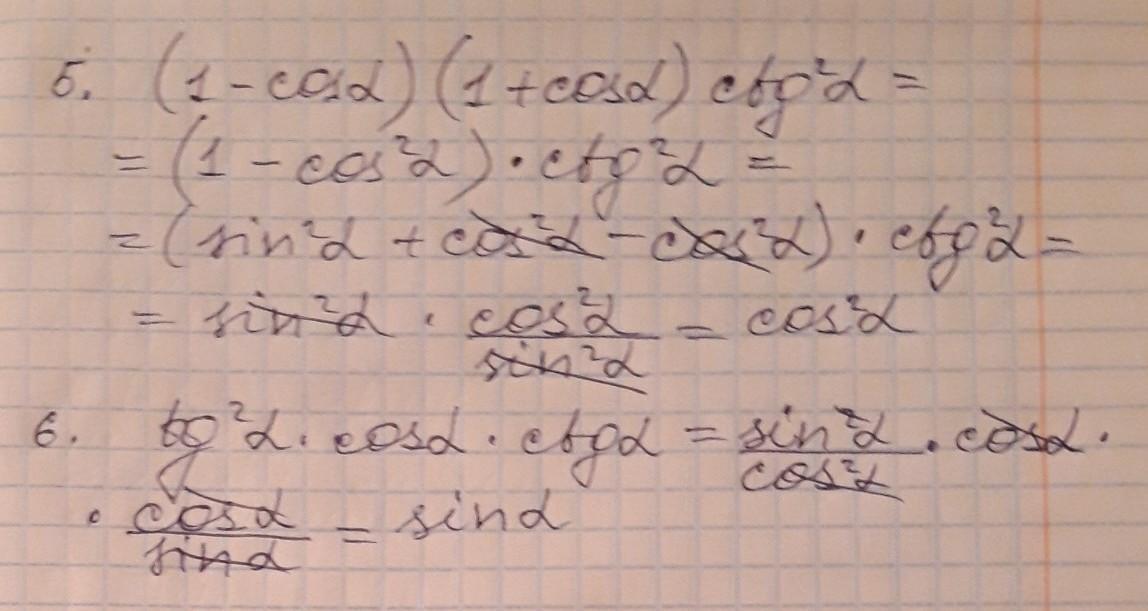 5. (1 - cosα)(1 + cosα) ctg²α =
= (1 - cos²α) · ctg²α =
= (sin²α + cos²α - cos²α) · ctg²α =
= sin²α · cos²α / sin²α = cos²α
6. tg²α · cosα · ctgα = sin²α / cos²α · cosα ·
· cosα / sinα = sinα